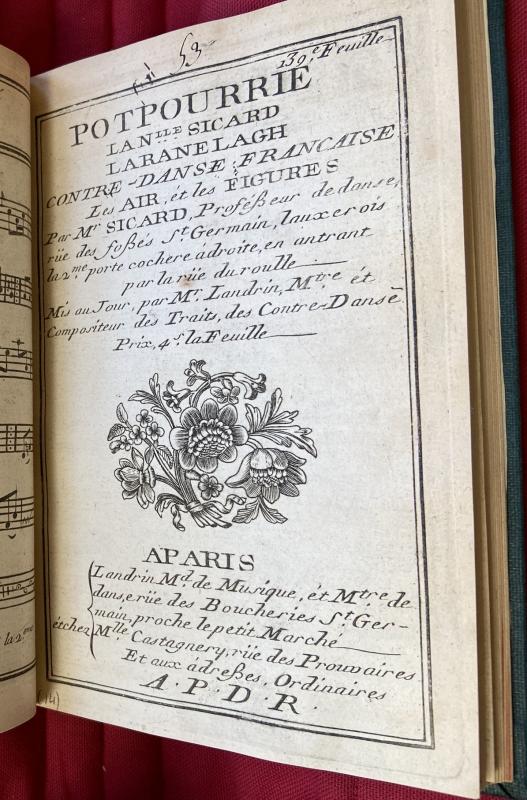 53
139.e Feuille
POTPOURRIE
LA Nlle SICARD
LA RANELAGH
CONTRE-DANSE, FRANCAISE
Les AIR, ét les FIGURES
Par Mr SICARD, Profeßeur de danse,
rüe des foßés St Germain, lauxerois
la 2.me porte cochere àdroite, en antrant
par la rüe du roulle
Mis au Jour, par Mr. Landrin, Mtre ét
Compositeur des Traits, des Contre-Danse
Prix, 4s. la Feuille
A PARIS
Landrin Md. de Musique, ét Mtre de
dans, e rüe des Boucheries St Ger-
main, proche le petit Marché
échez Mlle Castagnery, rüe des Prouvaires
Et aux àdreßes, Ordinaires
A. P. D. R.
(14)
la 2.me